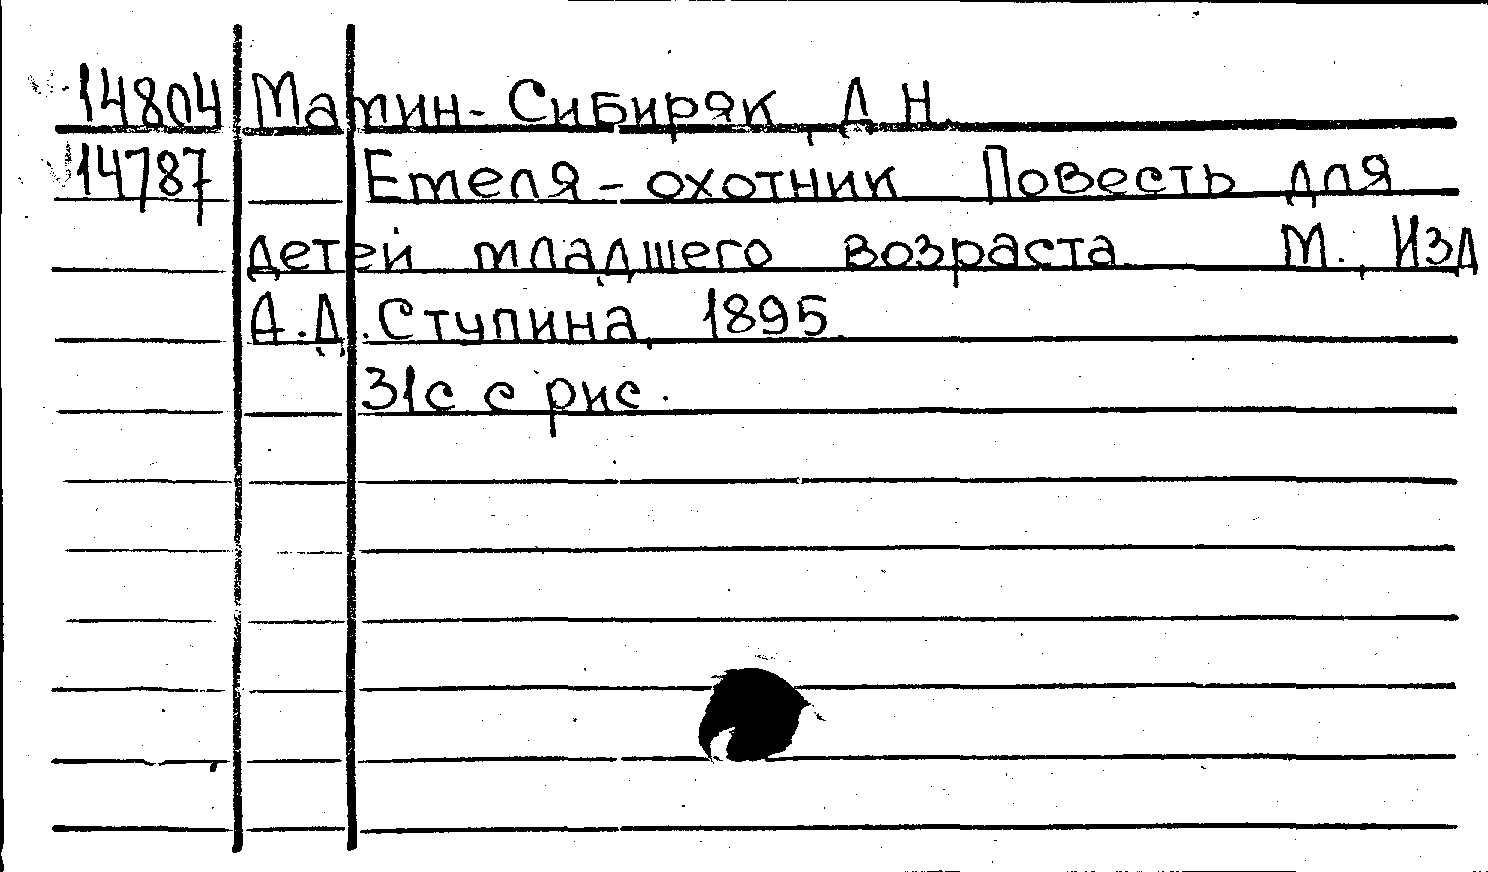 14804 Мамин-Сибиряк, Д Н.
14787 Емеля-охотник Повесть для
детей младшего возраста М., Изд
А.Д. Ступина, 1895
31с с рис.